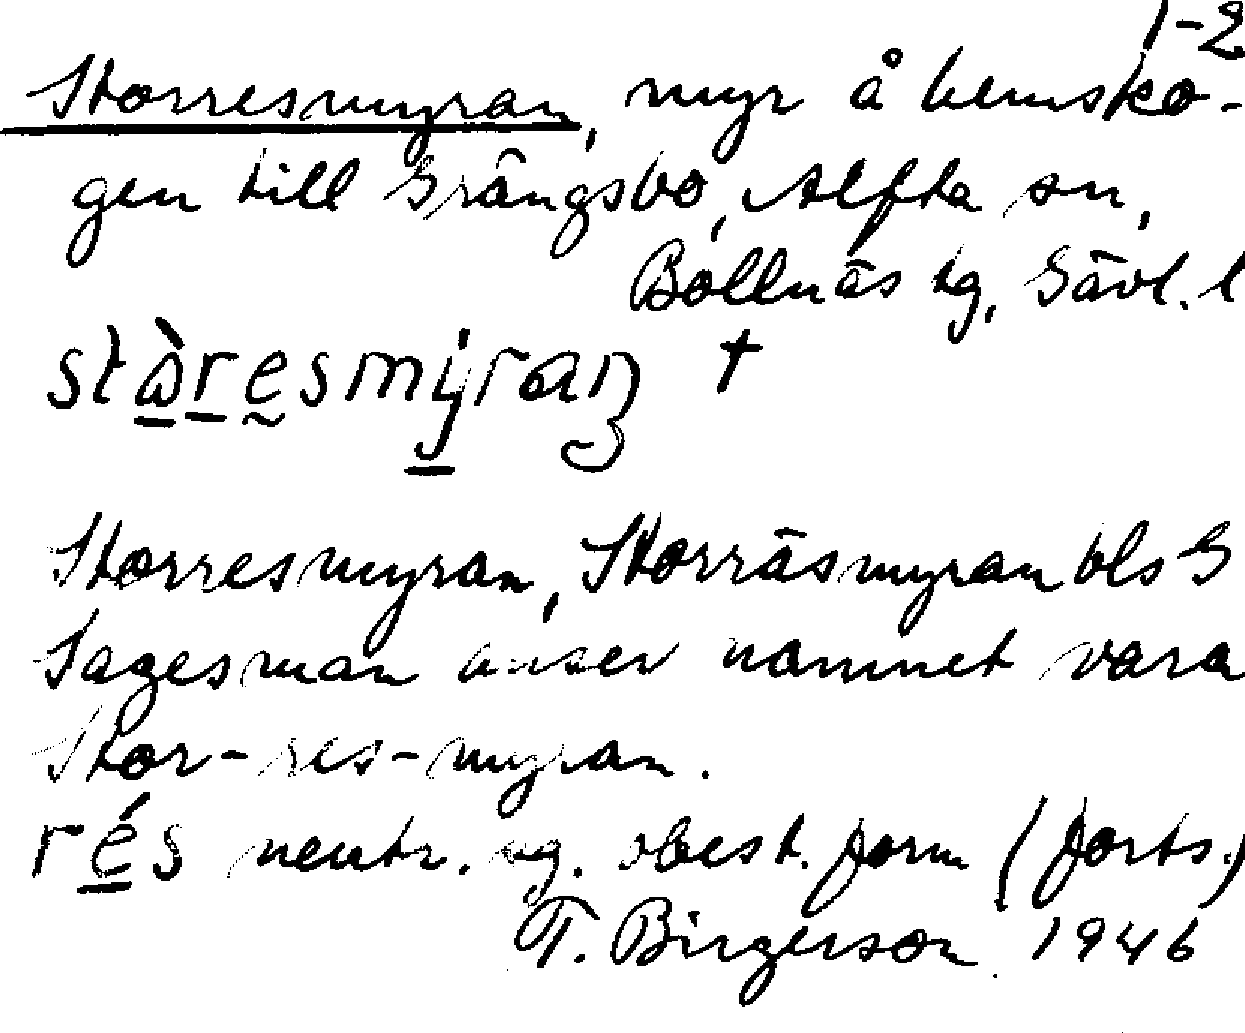 1-2
Storresmyran, myr å hemsko-
gen till Grängsbo, Alfta sn,
Bollnäs tg, Gävl. l
stàresmýran †
Storresmyran, Storräsmyran bls G
Sagesman anser namnet vara
Stor-res-myran.
rés neutr. sg. obest. form (forts.)
T. Birgerson 1946